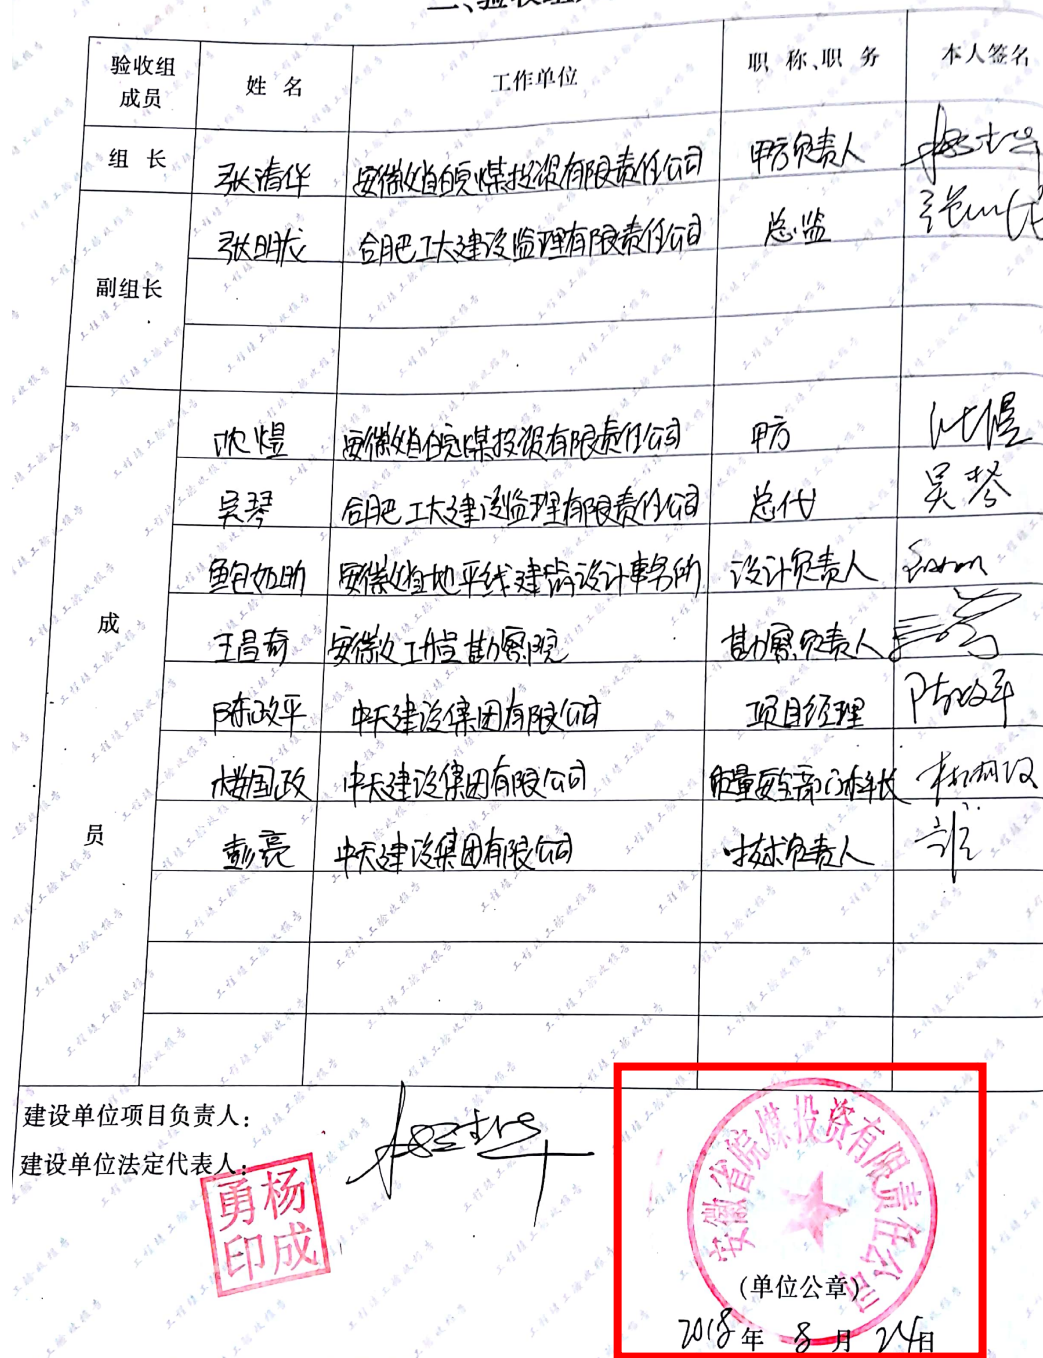 二、验收组
验收组成员 姓 名 工作单位 职 称、职 务 本人签名
组 长 张清华 安徽省皖煤投资有限责任公司 甲方负责人
副组长 张明龙 合肥工大建设监理有限责任公司 总监
成员
沈煜 安徽省皖煤投资有限责任公司 甲方 沈煜
吴琴 合肥工大建设监理有限责任公司 总代 吴琴
鲍如昀 安徽省地平线建筑设计事务所 设计负责人
王昌奇 安徽工程勘察院 勘察负责人
陈政平 中天建设集团有限公司 项目经理 陈政平
楼国政 中天建设集团有限公司 质量安全部门科长
彭亮 中天建设集团有限公司 技术负责人
建设单位项目负责人:
建设单位法定代表人:
杨成勇印
安徽省皖煤投资有限责任公司
(单位公章)
2018年 8 月 24日